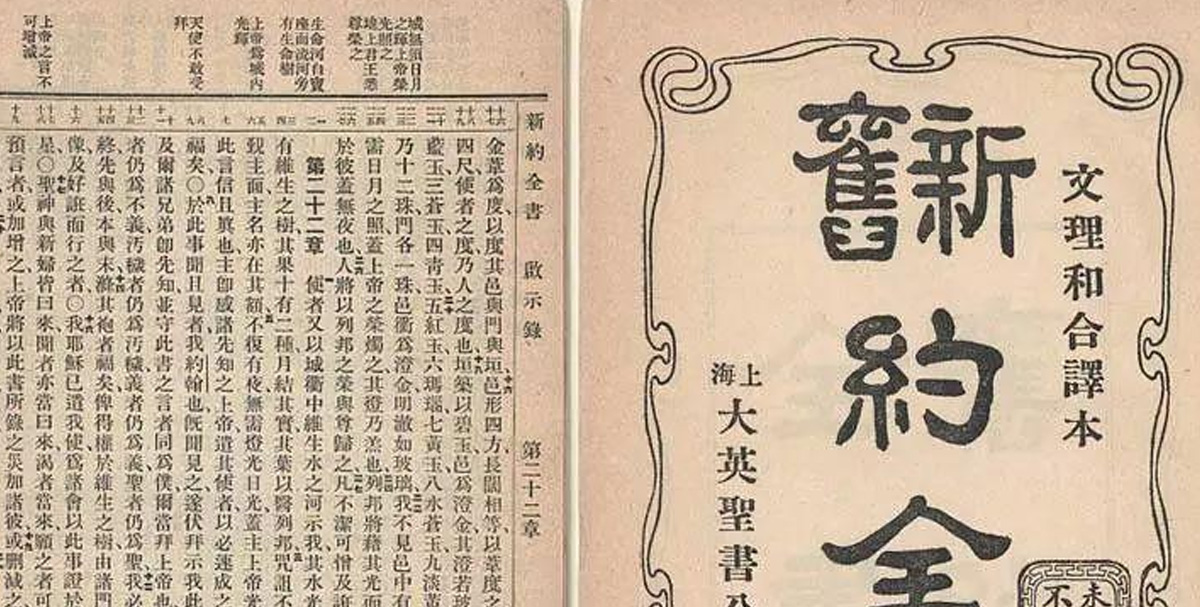 文理和合譯本
新舊約全
上海大英聖書
新約全書 啟示錄 第二十二章
城無須日月
之輝上帝榮
光照之
地上君王悉
尊榮之
生命河自寶
座而流河旁
有生命樹
上帝爲城內
光輝
天使不敢受
拜
上帝之言不
可增減
金葦爲度、以度其邑與門與垣、邑形四方、長闊相等、以葦度之
四尺、使者之度、乃人之度也、垣築以碧玉、邑爲澄金、其澄若玻
藍玉、三蒼玉、四青玉、五紅玉、六瑪瑙、七黃玉、八水蒼玉、九淡黃
乃十二珠、門各一珠、邑衢爲澄金、明澈如玻璃、我不見邑中有
需日月之照、蓋上帝之榮燭之、其燈乃羔也、列邦將藉其光而
於彼蓋無夜也、人將以列邦之榮與尊歸之、凡不潔可憎及誑
第二十二章 使者又以城衢中維生水之河示我、其水光
有維生之樹、其果十有二種、月結其實、其葉以醫列邦、咒詛不
覲主面、主名亦在其額、不復有夜、無需燈光日光、蓋主上帝光
此言信且眞也、主卽感諸先知之上帝、遣其使者、以必速成之
福矣〇於此事聞且見者、我約翰也、既聞見之、遂伏拜示我此
及爾諸兄弟卽先知、並守此書之言者、同爲僕、爾當拜上帝也
者仍爲不義、汚穢者仍爲汚穢、義者仍爲義、聖者仍爲聖、我必
終、先與後、本與末、滌其袍者福矣、俾得權於維生之樹、由諸門
像、及好誑而行之者〇我耶穌已遣我使、爲諸會以此事證於
星〇聖神與新婦皆曰來、聞者亦當曰來、渴者當來、願之者可
預言者、或加增之、上帝將以此書所錄之災加諸彼、或刪減之